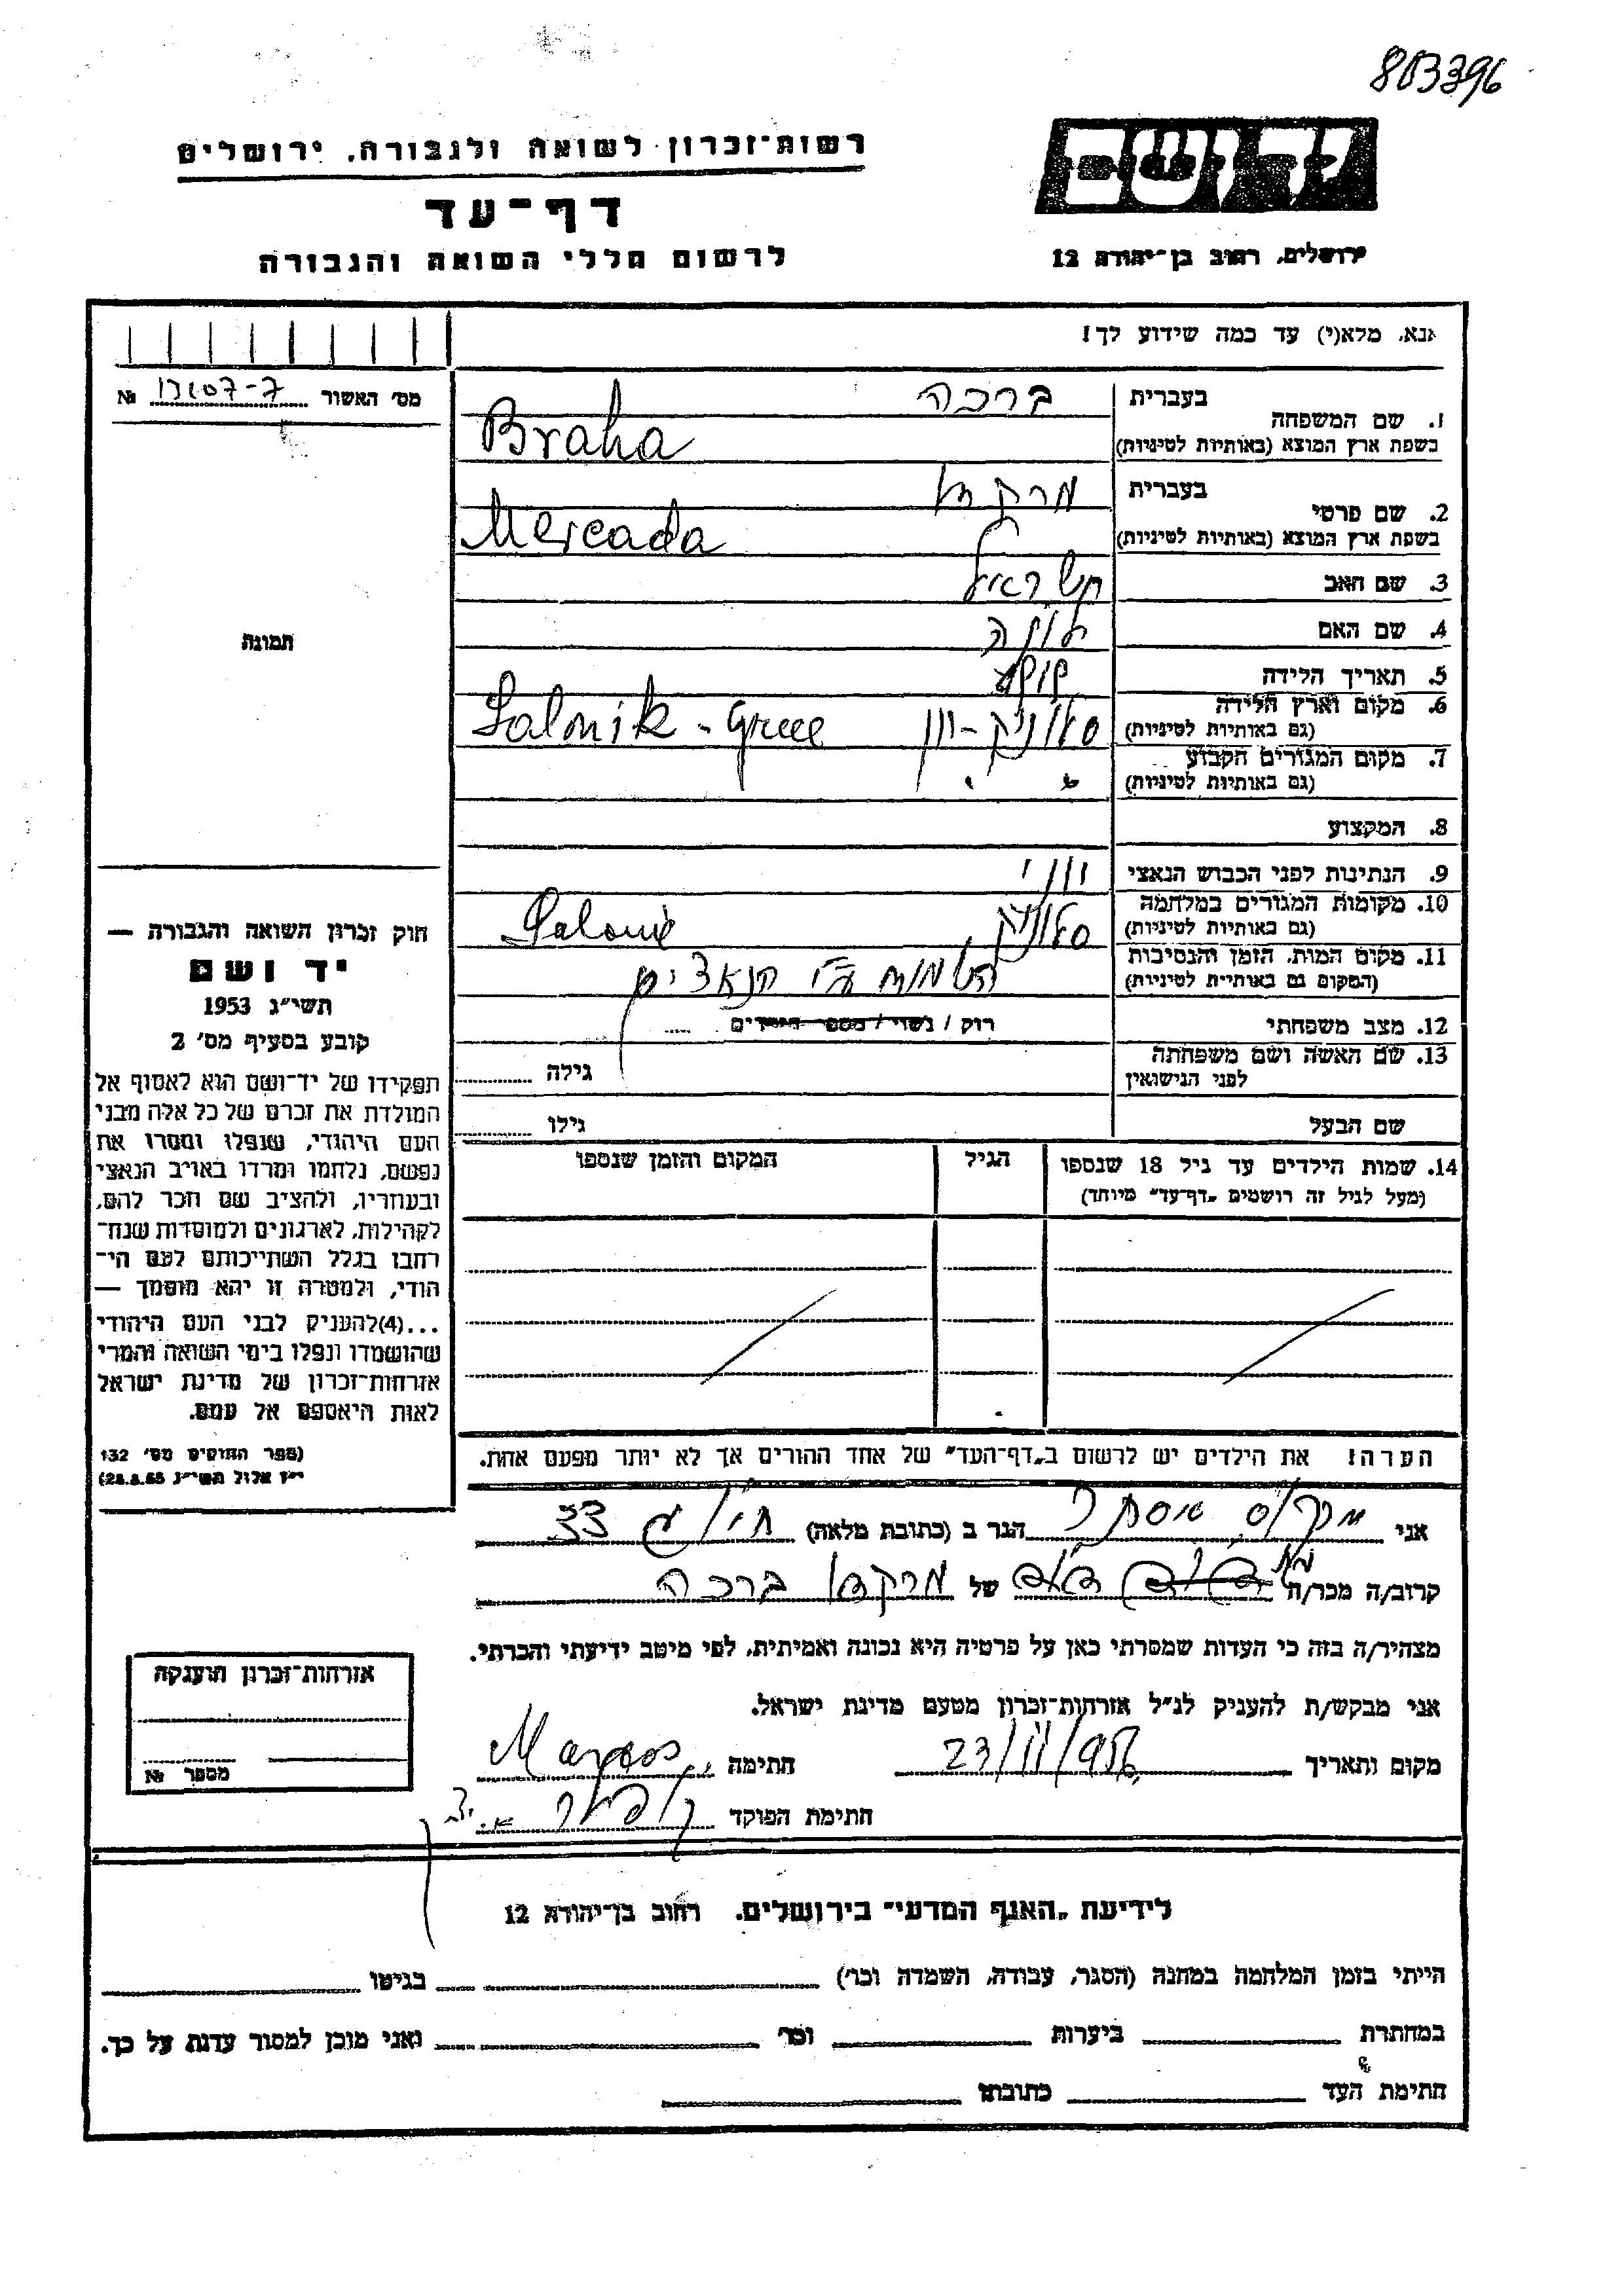 803396
רשות־זכרון לשואה ולגבורה, ירושלים
דף־עד
לרשום חללי השואה והגבורה
ירושלים, רחוב בן־יהודה 12
אנא, מלא(י) עד כמה שידוע לך!
מס׳ האשור № 7-
1. שם המשפחה בעברית ברכה
בשפת ארץ המוצא (באותיות לטיניות) Braha
2. שם פרטי בעברית
בשפת ארץ המוצא (באותיות לטיניות) Mercada
3. שם האב
4. שם האם
5. תאריך הלידה
6. מקום וארץ הלידה (גם באותיות לטיניות) סלוניק - יוון Salonik - Greece
7. מקום המגורים הקבוע (גם באותיות לטיניות)
8. המקצוע
9. הנתינות לפני הכבוש הנאצי יווני
10. מקומות המגורים במלחמה (גם באותיות לטיניות) סלוניק Saloník
11. מקום המות, הזמן והנסיבות (המקום גם באותיות לטיניות) הנאצים
12. מצב משפחתי רוק / נשוי / מספר הילדים
13. שם האשה ושם משפחתה לפני הנישואין גילה
שם הבעל גילו
14. שמות הילדים עד גיל 18 שנספו
(מעל לגיל זה רושמים „דף־עד״ מיוחד)
הגיל
המקום והזמן שנספו
תמונה
חוק זכרון השואה והגבורה —
יד ושם
תשי״ג 1953
קובע בסעיף מס׳ 2
תפקידו של יד־ושם הוא לאסוף אל
המולדת את זכרם של כל אלה מבני
העם היהודי, שנפלו ומסרו את
נפשם, נלחמו ומרדו באויב הנאצי
ובעוזריו, ולהציב שם וזכר להם,
לקהילות, לארגונים ולמוסדות שנח־
רבו בגלל השתייכותם לעם הי־
הודי, ולמטרה זו יהא מוסמך —
...(4)להעניק לבני העם היהודי
שהושמדו ונפלו בימי השואה והמרי
אזרחות־זכרון של מדינת ישראל
לאות היאספם אל עמם.
(ספר החוקים מס׳ 132
י״ז אלול תשי״ג
הערה! את הילדים יש לרשום ב„דף־העד״ של אחד ההורים אך לא יותר מפעם אחת.
אני מרקוס אסתר הגר ב (כתובת מלאה) 33
קרוב/ה מכר/ה של ברכה
מצהיר/ה בזה כי העדות שמסרתי כאן על פרטיה היא נכונה ואמיתית, לפי מיטב ידיעתי והכרתי.
אני מבקש/ת להעניק לנ״ל אזרחות־זכרון מטעם מדינת ישראל.
מקום ותאריך 23/11/956 חתימה
חתימת הפוקד
אזרחות־זכרון הוענקה
מספר №
לידיעת „האגף המדעי״ בירושלים, רחוב בן־יהודה 12
הייתי בזמן המלחמה במחנה (הסגר, עבודה, השמדה וכו׳) בגיטו
במחתרת ביערות וכו׳ ואני מוכן למסור עדות על כך.
חתימת העד כתובתו